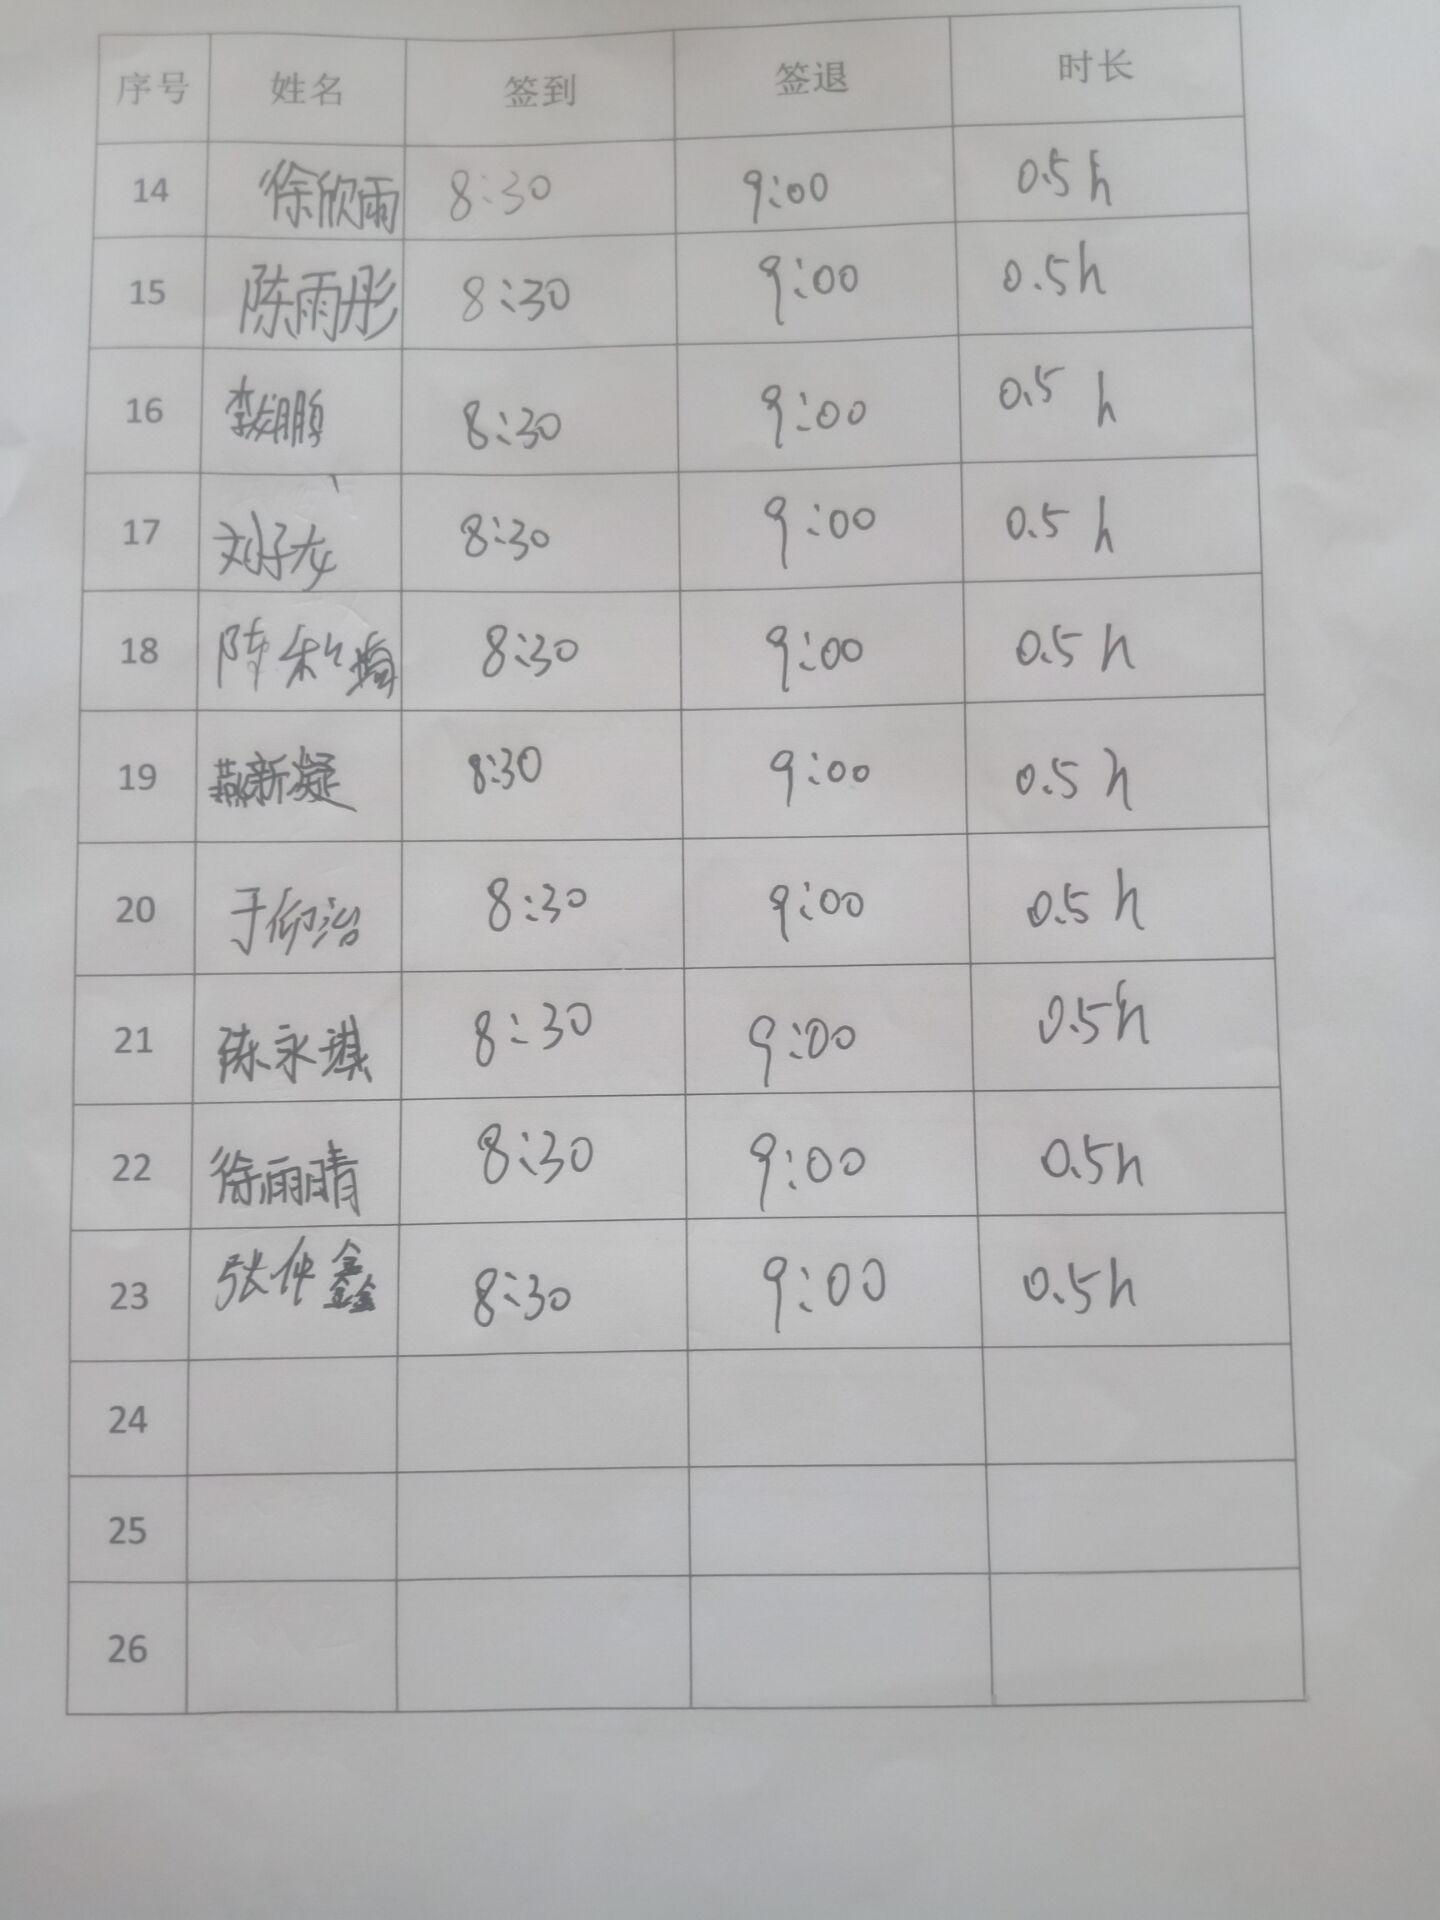 序号 姓名 签到 签退 时长
14 徐欣雨 8:30 9:00 0.5h
15 陈雨彤 8:30 9:00 0.5h
16 李 鹏 8:30 9:00 0.5h
17 刘子龙 8:30 9:00 0.5h
18 陈 8:30 9:00 0.5h
19 新凝 8:30 9:00 0.5h
20 于仰治 8:30 9:00 0.5h
21 陈永琪 8:30 9:00 0.5h
22 徐雨晴 8:30 9:00 0.5h
23 张仲鑫 8:30 9:00 0.5h
24
25
26